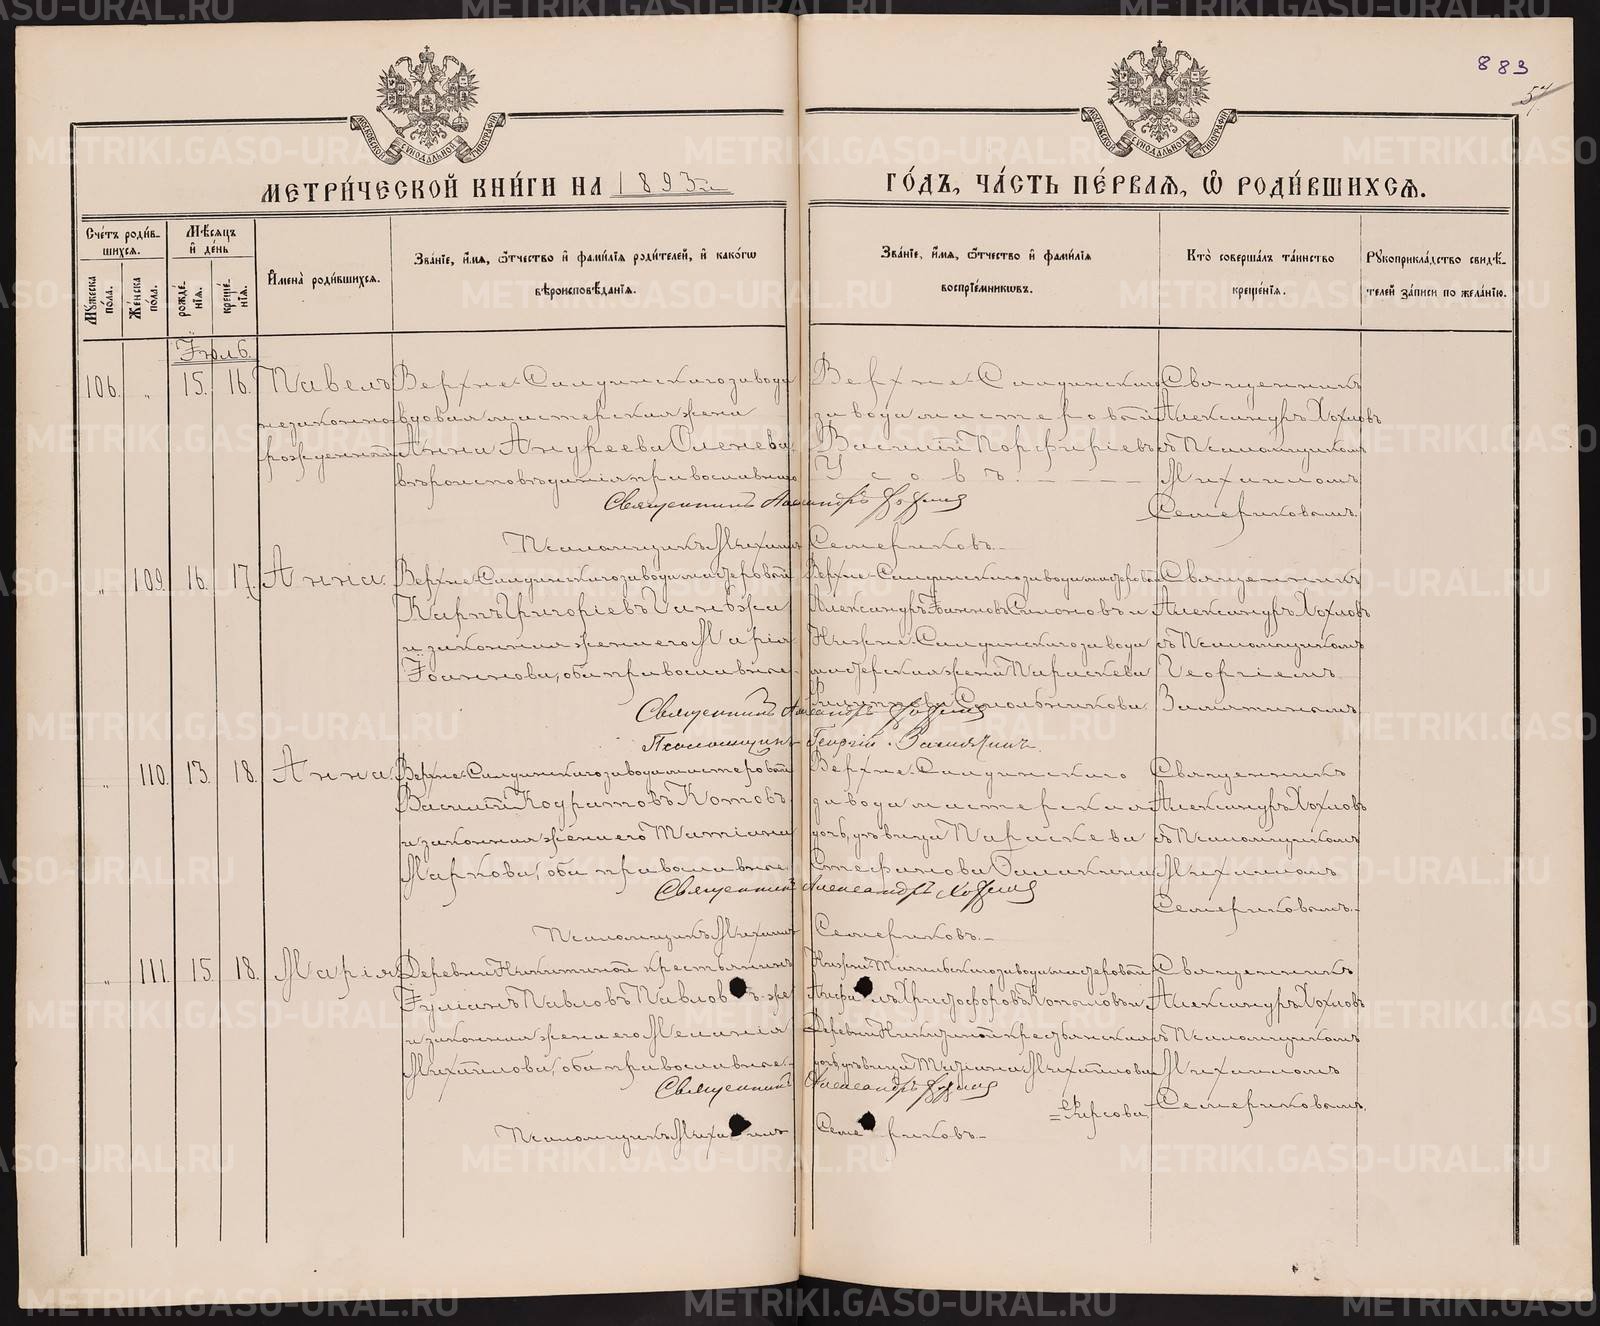 883
57
МОСКОВСКОЙ СѴНОДАЛЬНОЙ ТИПОГРАФІИ
МОСКОВСКОЙ СѴНОДАЛЬНОЙ ТИПОГРАФІИ
МЕТРИ́ЧЕСКОЙ КНИ́ГИ НА 1893й ГО́ДЪ, ЧА́СТЬ ПЕ́РВАѦ, Ѡ҆ РОДИ́ВШИХСѦ.
Сче́тъ роди́вшихся.
Мѣ́сяцъ и҆ де́нь
Мꙋ́жеска по́ла.
Же́нска по́ла.
рожде́нїѧ.
креще́нїѧ.
И҆мена̀ роди́вшихся.
Зва́нїе, и҆́мѧ, ѻ҆́тчество и҆ фамѝлїѧ роди́телей, и҆ како́гѡ
вѣроисповѣ́данїѧ.
Зва́нїе, и҆́мѧ, ѻ҆́тчество и҆ фамѝлїѧ
воспрїе́мникѡвъ.
Кто̀ соверша́лъ та́инство
креще́нїѧ.
Рꙋкоприкла́дство свидѣ́-
телей за́писи по жела́нїю.
Іюль.
106. „ 15. 16. Павелъ
незаконно
рожденный
Верхне-Салдинскаго завода
вдовая мастерская жена
Анна Андреева Оленева
вѣроисповѣданія православнаго
Верхне-Салдинскаго
завода мастеровой
Василій Порфиріевъ
Усовъ.
Священникъ
Александръ Хохловъ
съ Псаломщикомъ
Михаиломъ
Семериковымъ.
Священникъ Александръ Хохловъ
Псаломщикъ Михаилъ Семериковъ.
„ 109. 16. 17. Анна.
Верхне-Салдинскаго завода мастеровой
Карпъ Григоріевъ
и законная жена его Марія
Іоаннова, оба православные.
Верхне-Салдинскаго завода мастеровой
Александръ Іоанновъ Симоновъ и
Нижне-Салдинскаго завода
мастерская жена Параскева
Священникъ
Александръ Хохловъ
съ Псаломщикомъ
Георгіемъ
Замятинымъ
Священникъ Александръ Хохловъ
Псаломщикъ Георгій Замятинъ.
„ 110. 13. 18. Анна.
Верхне-Салдинскаго завода мастеровой
Василій Кодратовъ Котовъ
и законная жена его Татіана
Маркова, оба православные.
Верхне-Салдинскаго
завода мастерская
дочь, дѣвица Параскева
Стефанова
Священникъ
Александръ Хохловъ
съ Псаломщикомъ
Михаиломъ
Семериковымъ.
Священникъ Александръ Хохловъ
Псаломщикъ Михаилъ Семериковъ.
„ 111. 15. 18. Марія
Деревни Никитиной крестьянинъ
Іуліанъ Павловъ Павловъ же
и законная жена его Меланія
Михайлова, оба православные.
Нижне-Тагильскаго завода мастеровой
Христофоровъ Копыловъ и
Деревни Никитиной крестьянская
дочь дѣвица Татіана Михайлова
Фирсова
Священникъ
Александръ Хохловъ
съ Псаломщикомъ
Михаиломъ
Семериковымъ.
Священникъ Александръ Хохловъ
Псаломщикъ Михаилъ Семериковъ.
METRIKI.GASO-URAL.RU